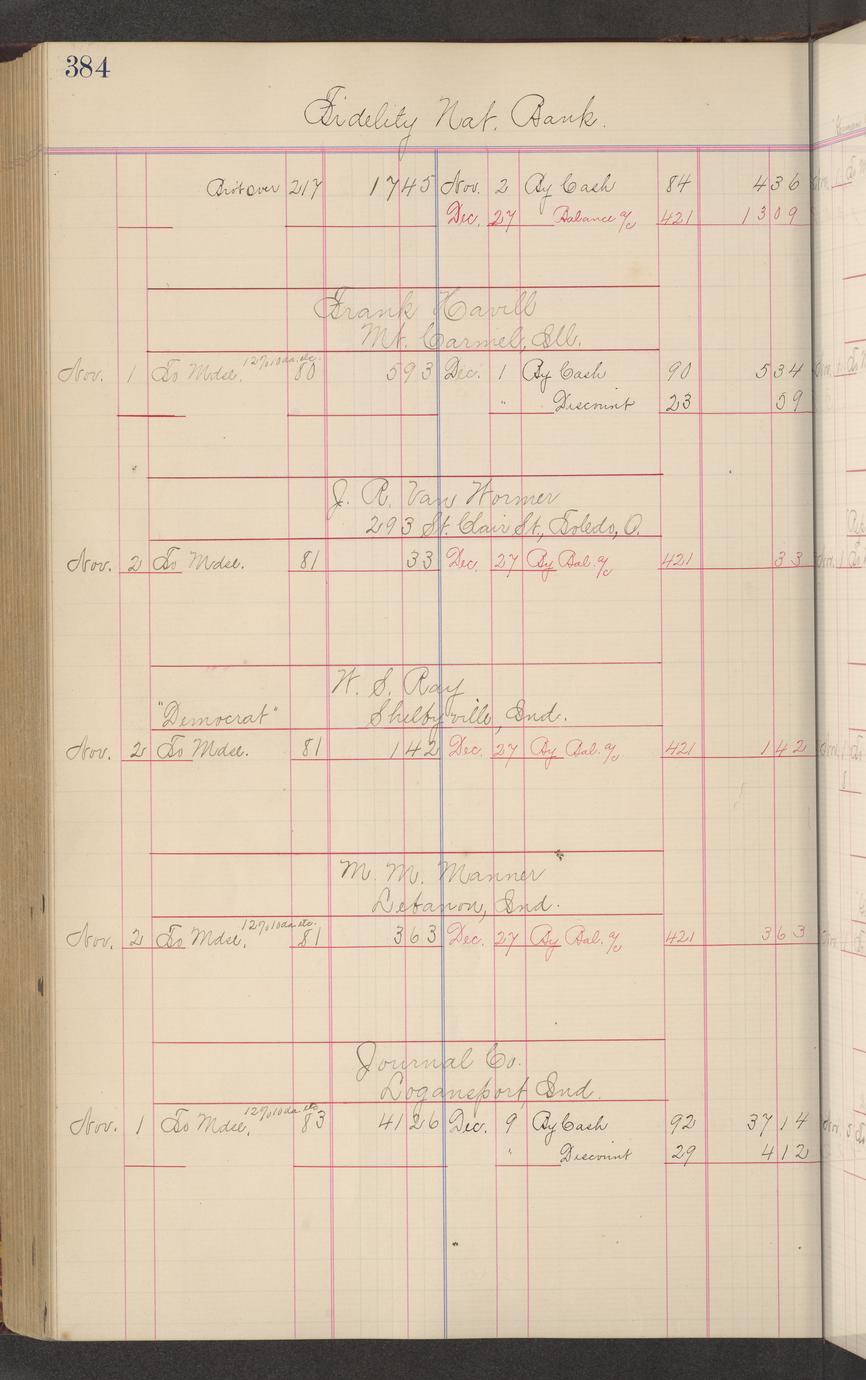 384
Fidelity Nat. Bank.
Bro't over 217 1745 Nov. 2 By Cash 84 436
Dec. 27 Balance a/c 421 1309
Frank Havill
Mt. Carmel, Ill.
Nov. 1 To Mdse. 12% 10 da. etc. 80 593 Dec. 1 By Cash 90 534
" Discount 23 59
J. R. Van Wormer
293 St. Clair St., Toledo, O.
Nov. 2 To Mdse. 81 33 Dec. 27 By Bal. a/c 421 33
W. S. Ray
"Democrat" Shelbyville, Ind.
Nov. 2 To Mdse. 81 142 Dec. 27 By Bal. a/c 421 142
M. M. Manner
Lebanon, Ind.
Nov. 2 To Mdse. 12% 10 da. etc. 81 363 Dec. 27 By Bal. a/c 421 363
Journal Co.
Logansport, Ind.
Nov. 1 To Mdse. 12% 10 da. etc. 83 4126 Dec. 9 By Cash 92 3714
" Discount 29 412